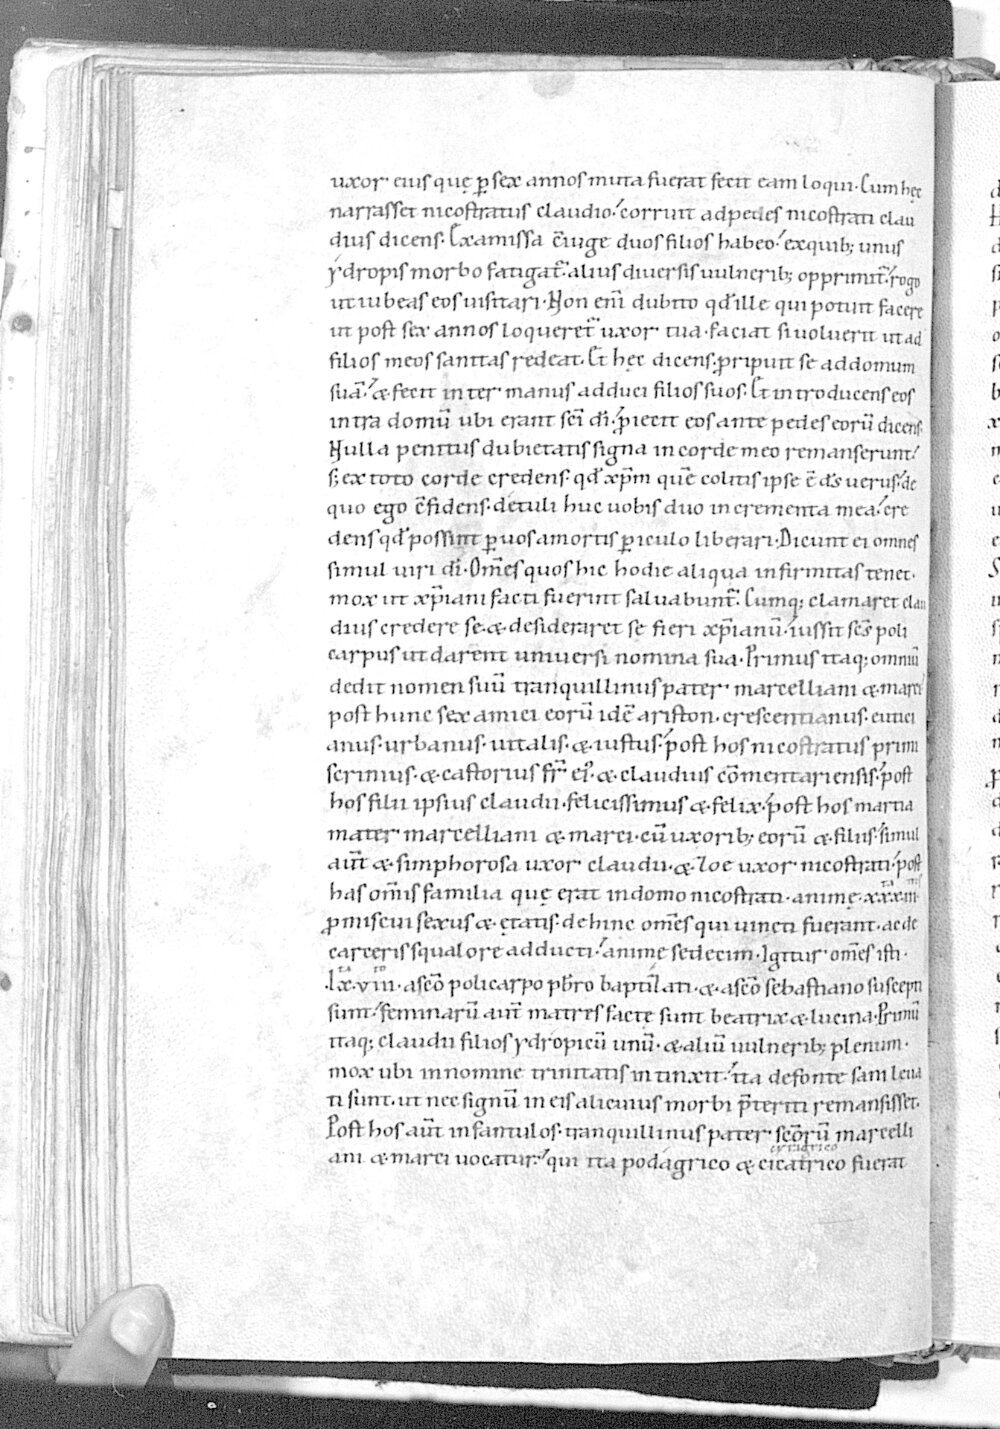 uxor· eius quę ꝑ sex annos muta fuerat fecit eam loqui· Cum hęc
narrasset nicostratus claudio· corruit ad pedes nicostrati clau
dius dicens· Ex amissa c̄iuge duos filios habeo· ex quib; unus
ydropis morbo fatigat̄· alius diuersis uulnerib; opprimit̄· rogo
ut iubeas eos uisitari· Non eni̅ dubito qđ ille qui potuit facere
ut post sex annos loqueret̄ uxor tua· faciat si uoluerit ut ad
filios meos sanitas redeat· Et hęc dicens· ꝓripuit se ad domum
suā· & fecit inter manus adduci filios suos· Et introducens eos
intra domū ubi erant sc̄i dī· ꝓiecit eos ante pedes eorū dicens·
Nulla penitus dubietatis signa in corde meo remanserunt·
s; ex toto corde credens· qđ xp̄m quē colitis ipse ē d̄s uerus· de
quo ego c̄fidens· detuli huc uobis duo incrementa mea· cre
dens qđ possint ꝑ uos a mortis ꝑiculo liberari· Dicunt ei omnes
simul uiri dī· Om̄es quos hic hodie aliqua infirmitas tenet·
mox ut xp̄iani facti fuerint saluabunt̄· Cumq; clamaret clau
dius credere se· & desideraret se fieri xp̄ianū· iussit sc̄s poli
carpus ut darent uniuersi nomina sua· Primus itaq; omniū
dedit nomen suū tranquillinus pater marcelliani & marci·
post hunc sex amici eorū idē ariston· crescentianus· eutici
anus· urbanus· uitalis· & iustus· post hos nicostratus primi
scrinius· & castorius fr̄ ei᾿· & claudius cōmentariensis· post
hos filii ipsius claudii· felicissimus & felix· post hos martia
mater marcelliani & marci· cū uxorib; eorū & filiis· simul
aut̄ & simphorosa uxor claudii· & zoe uxor nicostrati· post
has om̄is familia quę erat in domo nicostrati· animę· xxx·iii·
ꝓmiscui sexus & ętatis· dehinc om̄es qui uincti fuerant· ac de
carceris squalore adducti· animę sedecim· Igitur om̄es isti·
·lx·viii· a sc̄o policarpo pb̄ro baptizati· & a sc̄o sebastiano suscepti
sunt· feminarū aut̄ matres factę sunt beatrix & lucina· Primū
itaq; claudii filios ydropicū unū· & aliū uulnerib; plenum·
mox ubi in nomine trinitatis intinxit· ita de fonte sani leua
ti sunt· ut nec signū in eis alicuius morbi p̄teriti remansisset·
Post hos aut̄ infantulos· tranquillinus pater sc̄orū marcelli
ani & marci uocatur· qui ita podagrico & cicatrico fuerat